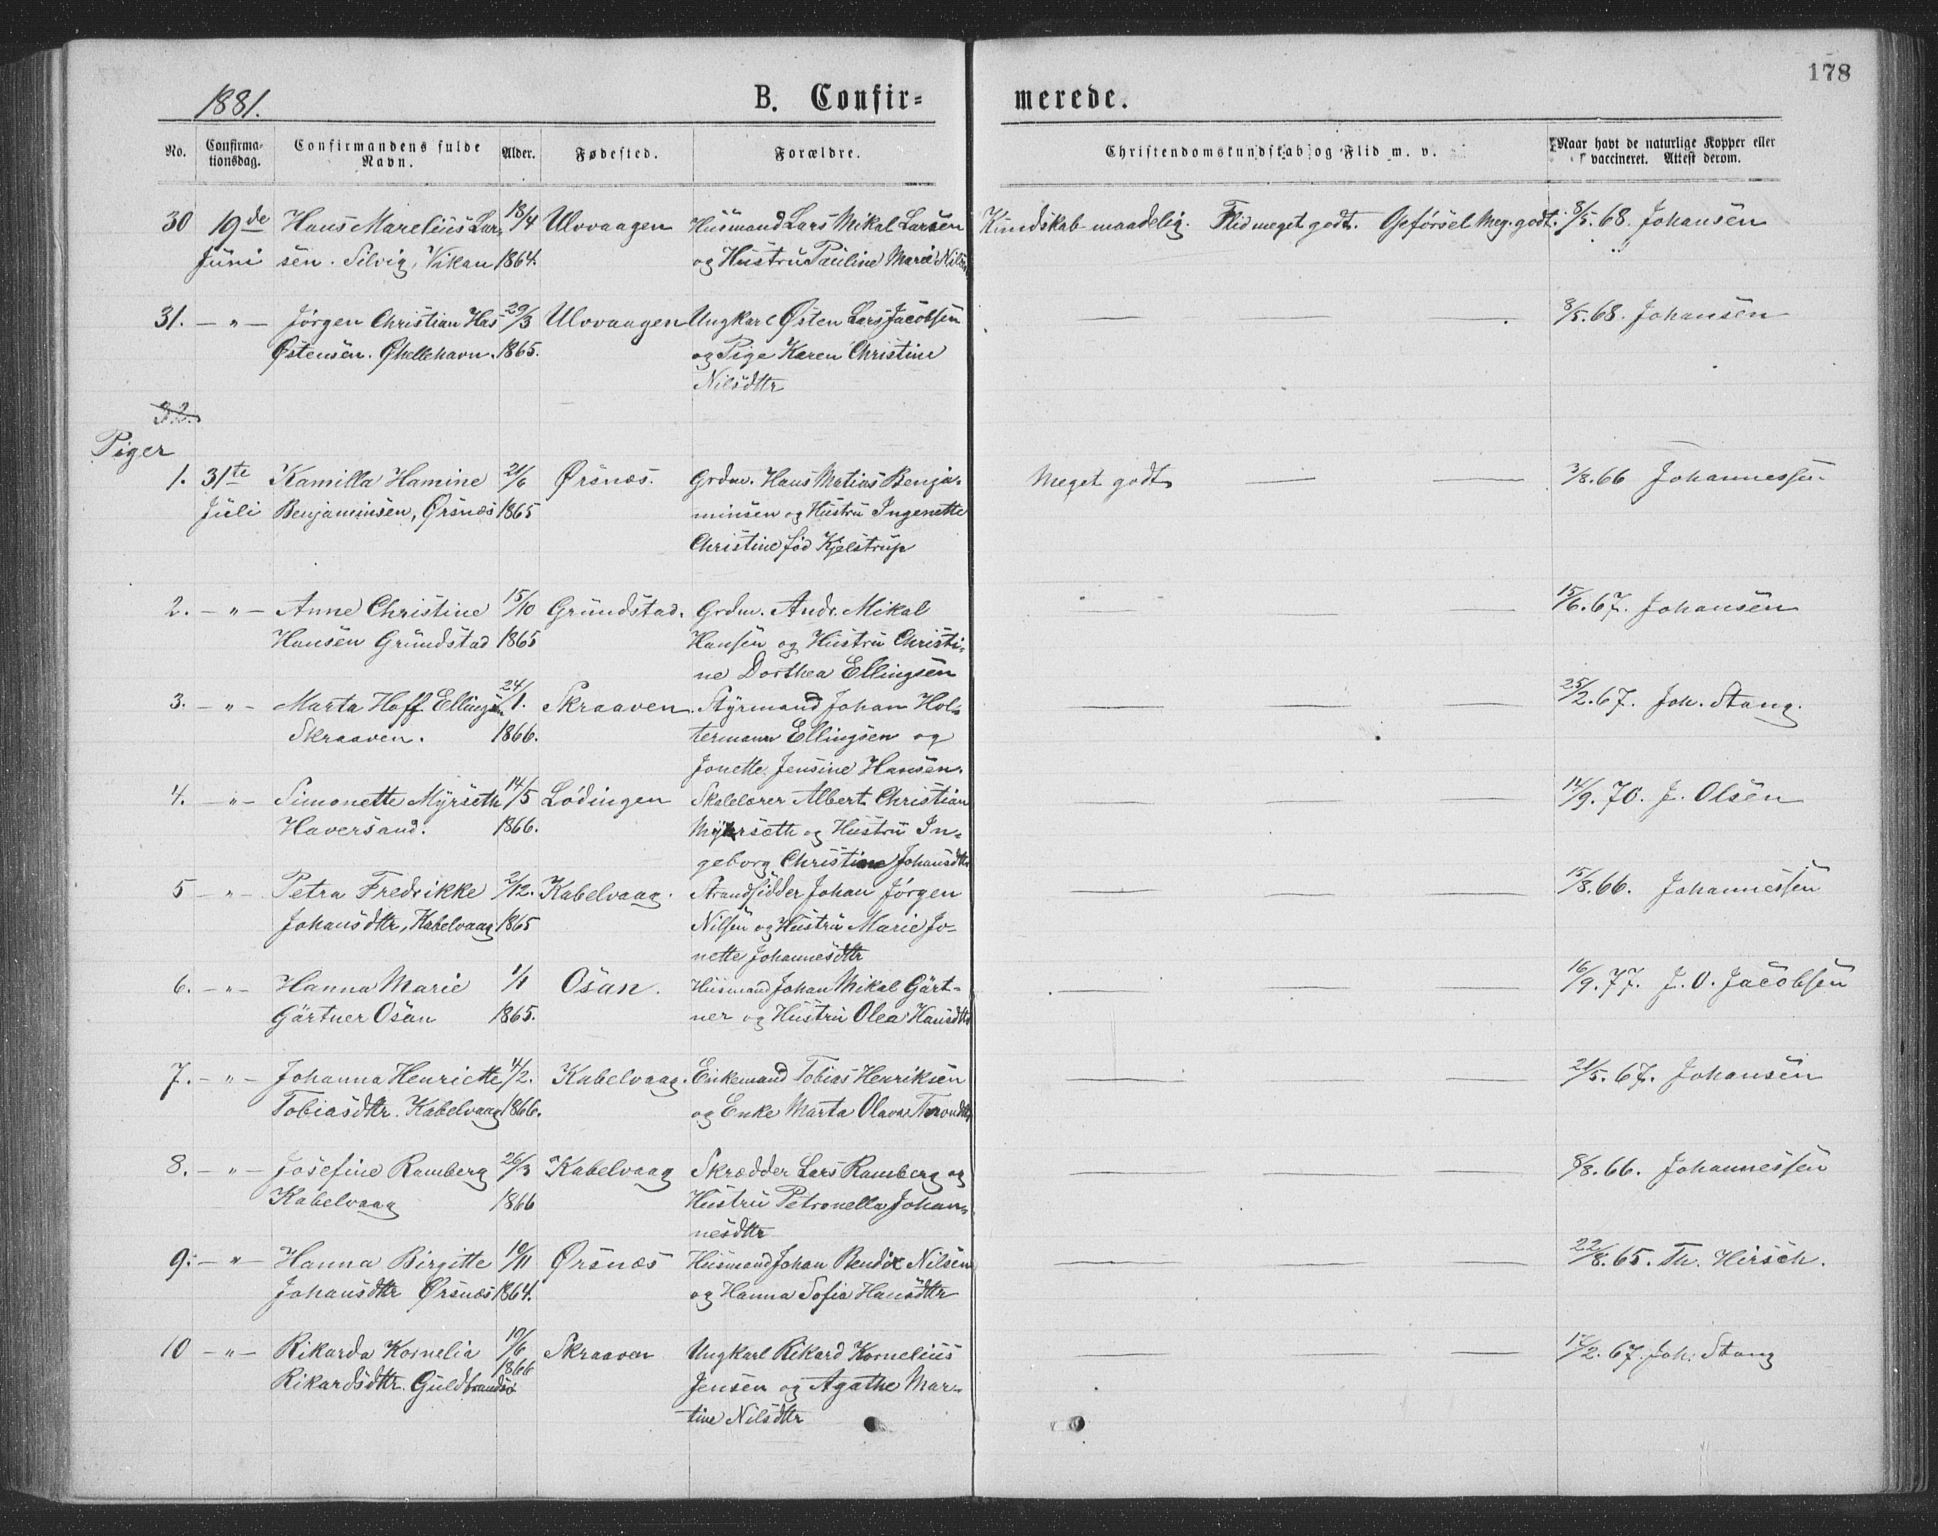 178
1881.
B. Confir-
merede.
No. Confirma-tionsdag. Confirmandens fulde Navn. Alder. Fødested. Forældre. Christendomskundskab og Flid m. v. Naar havt de naturlige Kopper eller vaccineret. Attest derom.
30 19de Hans Marelius Lar- 18/4 Ulvvaagen Husmand Lars Mikal Larsen Kundskab maadelig. Flid meget godt. Opførsel Meg. godt. 8/5.68. Johansen
Juni sen. Silvig, Vikan 1864. og Hustru Pauline Marie Nils
31. — " — Jørgen Christian Has 29/3 Ulvvaagen Ungkarl Østen Lars Jacobsen — — 8/5.68. Johansen
Østensen. Øhellehavn. 1865. og Pige Karen Christine
Nilsdttr
32.
Piger
1. 31te Kamilla Hamine 21/6 Ørsnæs. Grdm. Hans Matias Benja- Meget godt — — 3/8.66 Johannessen
Juli Benjaminsen, Ørsnæs 1865 minsen og Hustru Ingenette
Christine fød Kjelstrup
2. — " — Anne Christine 15/10 Grundstad. Grdm. Andr. Mikal — — — 15/6.67. Johansen
Hansen Grundstad 1865 Hansen og Hustru Christi-
ne Dorthea Ellingsen
3. — " — Marta Hoff Ellingsen 24/1. Skraaven. Styrmand Johan Hol- — — — 25/2.67. Joh. Stang.
Skraaven. 1866. termann Ellingsen og
Jonette Jensine Hansen.
4. — " — Simonette Myrseth 14/5 Lødingen Skolelærer Albert Christian — — — 14/9.70. J. Olsen
Haversand. 1866. Myrseth og Hustru In-
geborg Christine Johansdttr
5 — " — Petra Fredrikke 2/12. Kabelvaag. Strandsidder Johan Jørgen — — — 15/8.66. Johannessen
Johansdttr, Kabelvaag 1865 Nilsen og Hustru Marie Jo-
nette Johannesdttr
6. — " — Hanna Marie 1/1 Osan. Husmand Johan Mikal Gärt- — — — 16/9.77. J. O. Jacobsen
Gärtner Osan 1865. ner og Hustru Olea Hansdttr
7. — " — Johanna Henriette 4/2. Kabelvaag. Enkemand Tobias Henriksen — — — 21/5.67. Johansen
Tobiasdttr. Kabelvaag 1866. og Enke Marta Olava Tronddttr
8. — " — Josefine Ramberg 26/3 Kabelvaag Skrædder Lars Ramberg og — — — 8/8.66. Johannessen
Kabelvaag 1866 Hustru Petronella Johan-
nesdttr
9. — " — Hanna Birgitte 10/11 Ørsnæs Husmand Johan Bendix Nilsen — — — 22/8.65. Th. Hirsch.
Johansdttr Ørsnæs 1864. og Hanna Sofia Hansdttr
10 — " — Rikarda Kornelia 10/6 Skraaven Ungkarl Rikard Kornelius — — — 17/2.67. Joh. Stang
Rikardsdttr. Guldbrandsö 1866 Jensen og Agathe Mar-
tine Nilsdttr